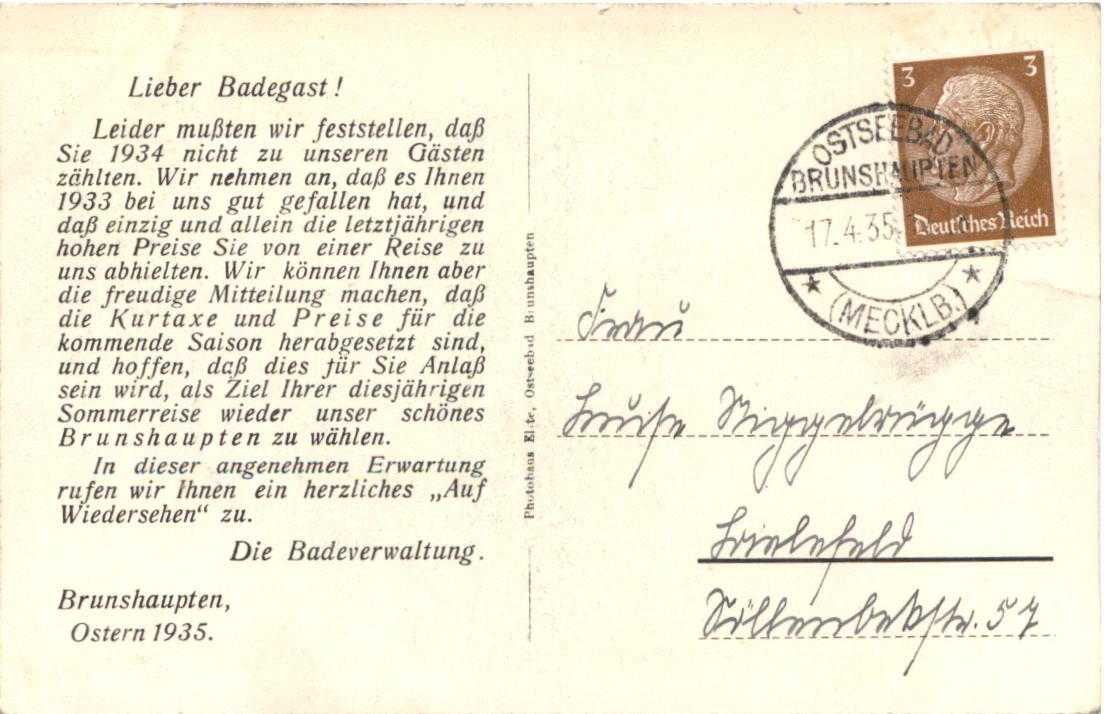 Lieber Badegast!
Leider mußten wir feststellen, daß
Sie 1934 nicht zu unseren Gästen
zählten. Wir nehmen an, daß es Ihnen
1933 bei uns gut gefallen hat, und
daß einzig und allein die letztjährigen
hohen Preise Sie von einer Reise zu
uns abhielten. Wir können Ihnen aber
die freudige Mitteilung machen, daß
die Kurtaxe und Preise für die
kommende Saison herabgesetzt sind,
und hoffen, daß dies für Sie Anlaß
sein wird, als Ziel Ihrer diesjährigen
Sommerreise wieder unser schönes
Brunshaupten zu wählen.
In dieser angenehmen Erwartung
rufen wir Ihnen ein herzliches „Auf
Wiedersehen“ zu.
Die Badeverwaltung.
Brunshaupten,
Ostern 1935.
Photohaus Elite, Ostseebad Brunshaupten
3 3
Deutsches Reich
OSTSEEBAD
BRUNSHAUPTEN
17.4.35
(MECKLB.)
Frau
Luise Niggebrügge
Bielefeld
57